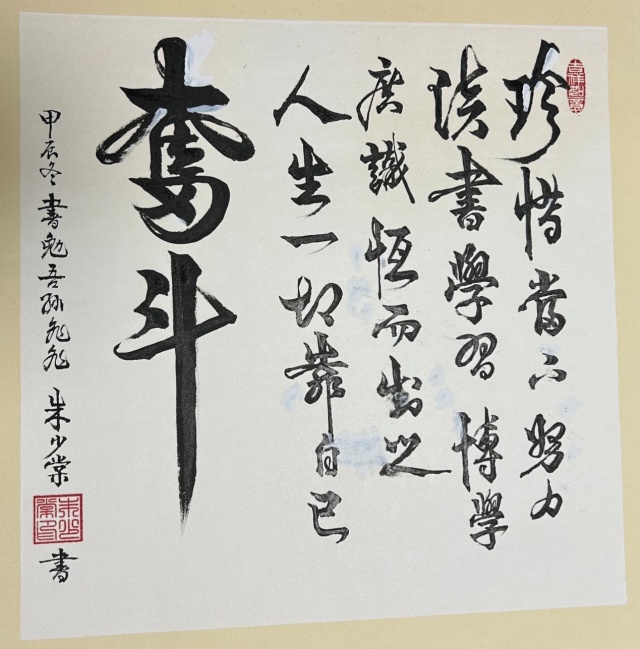 吉祥如意
珍惜當下努力
读書學習博學
广識恒而之
人生一切靠自己
奮斗
甲辰冬書勉吾孙朱少棠
書